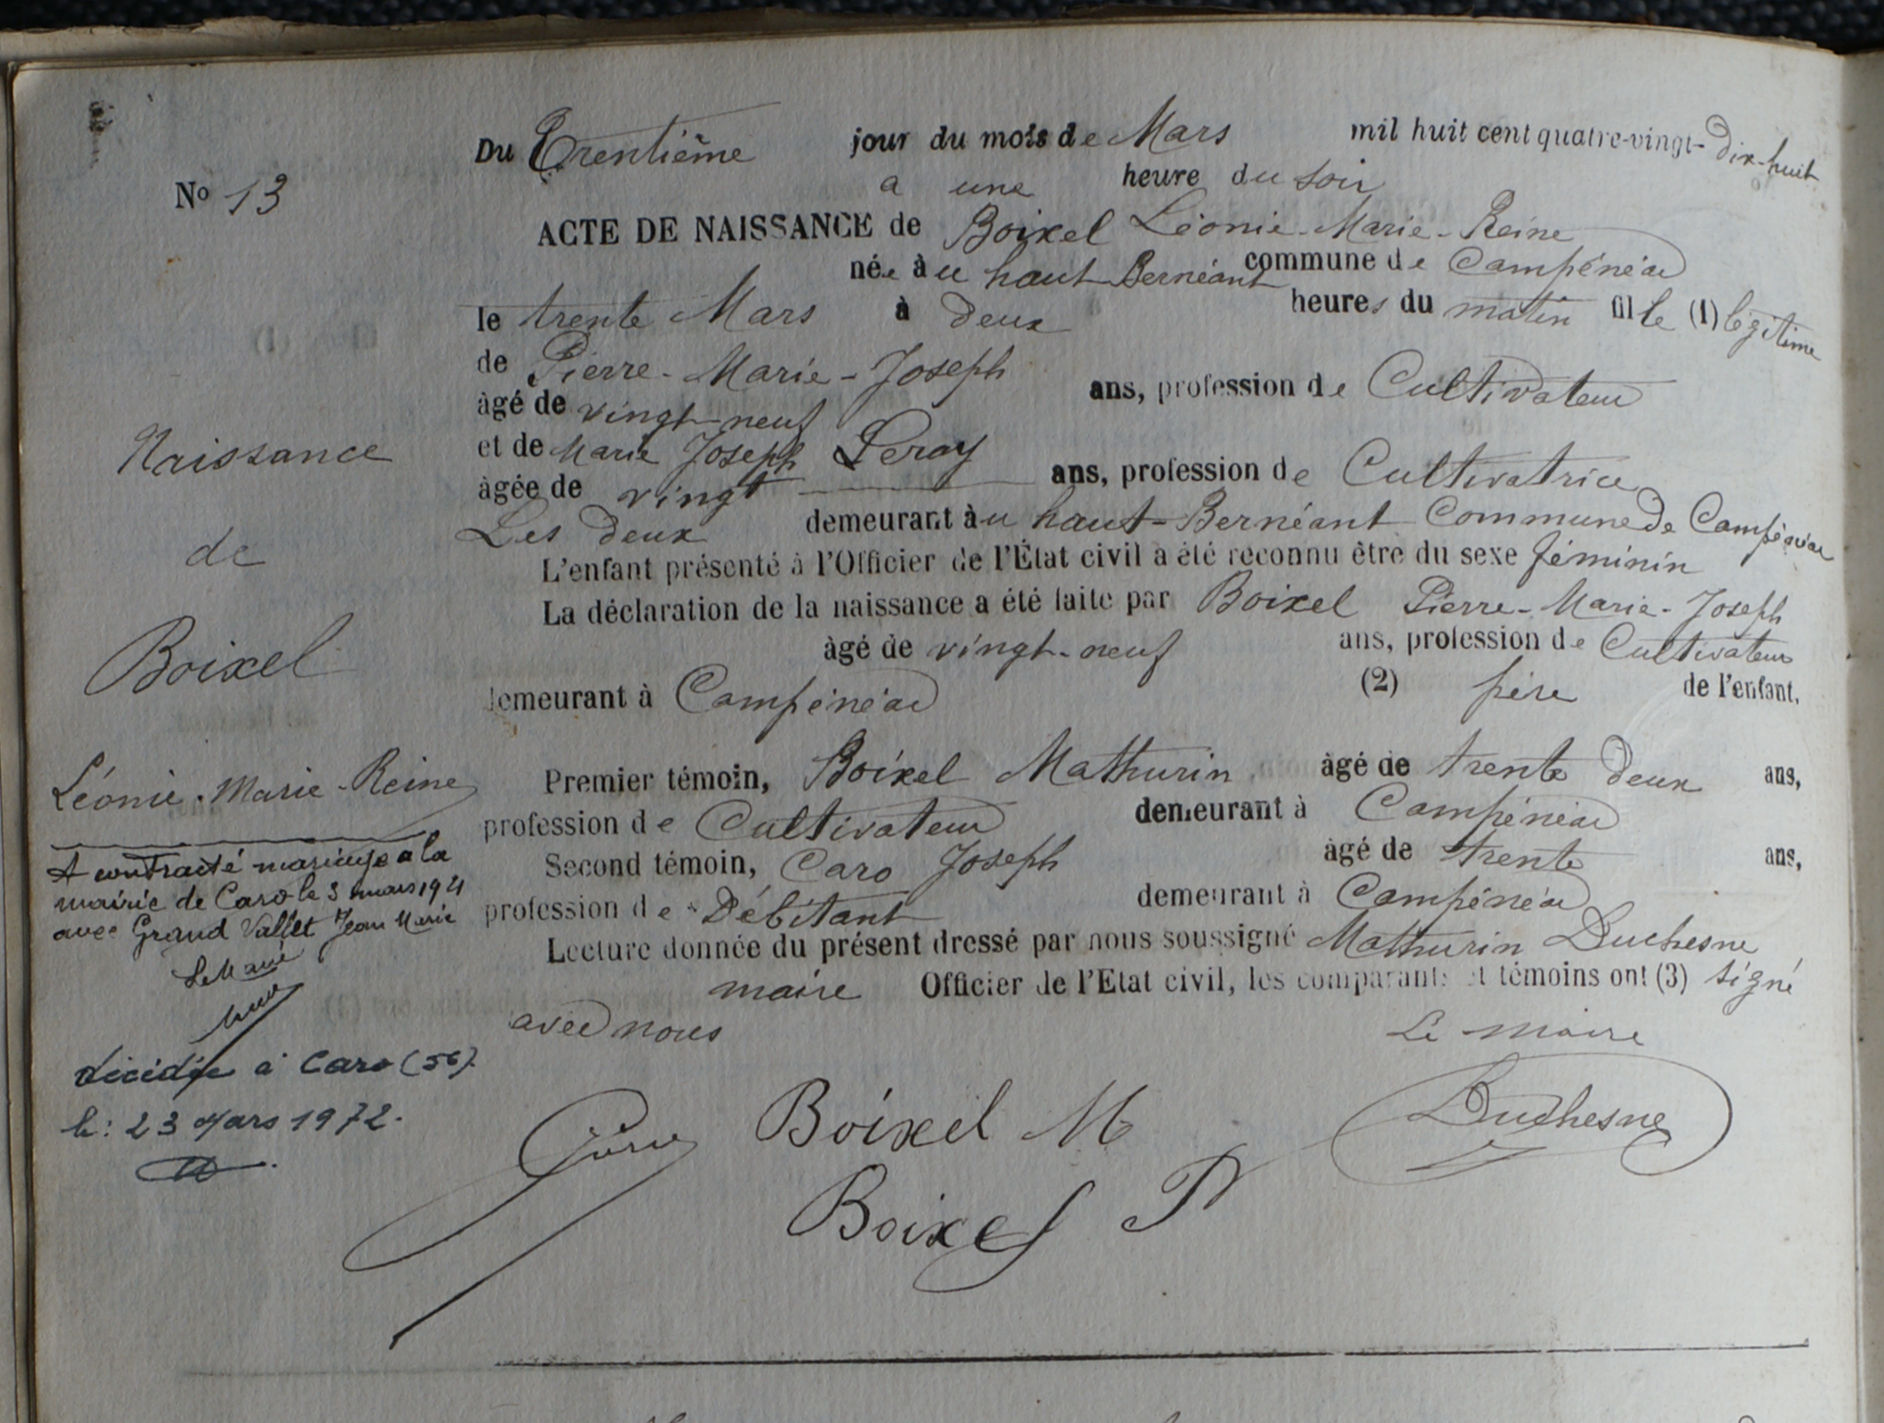 No 13
Naissance
de
Boixel
Léonie-Marie-Reine
A contracté mariage à la
mairie de Caro le 3 mars 1921
avec Grand Vallet Jean Marie
Le Maire
décédée à Caro (56).
le: 23 Mars 1972.
Du Trentième jour du mois de Mars mil huit cent quatre-vingt-dix-huit
a une heure du soir
ACTE DE NAISSANCE de Boixel Léonie-Marie-Reine
née au haut Bernéant commune de Campénéac
le trente Mars à deux heures du matin fille (1) légitime
de Pierre-Marie-Joseph
âgé de vingt-neuf ans, profession de Cultivateur
et de Marie Joseph Leray
âgée de vingt ans, profession de Cultivatrice
Les deux demeurant au haut-Bernéant Commune de Campénéac
L'enfant présenté à l'Officier de l'État civil a été reconnu être du sexe féminin
La déclaration de la naissance a été faite par Boixel Pierre-Marie-Joseph
âgé de vingt-neuf ans, profession de Cultivateur
demeurant à Campénéac (2) père de l'enfant.
Premier témoin, Boixel Mathurin âgé de trente deux ans,
profession de Cultivateur demeurant à Campénéac
Second témoin, Caro Joseph âgé de trente ans,
profession de Débitant demeurant à Campénéac
Lecture donnée du présent dressé par nous soussigné Mathurin Duchesne
maire Officier de l'Etat civil, les comparants et témoins ont (3) signé
avec nous Le maire
Boixel M Duchesne
Boixel P